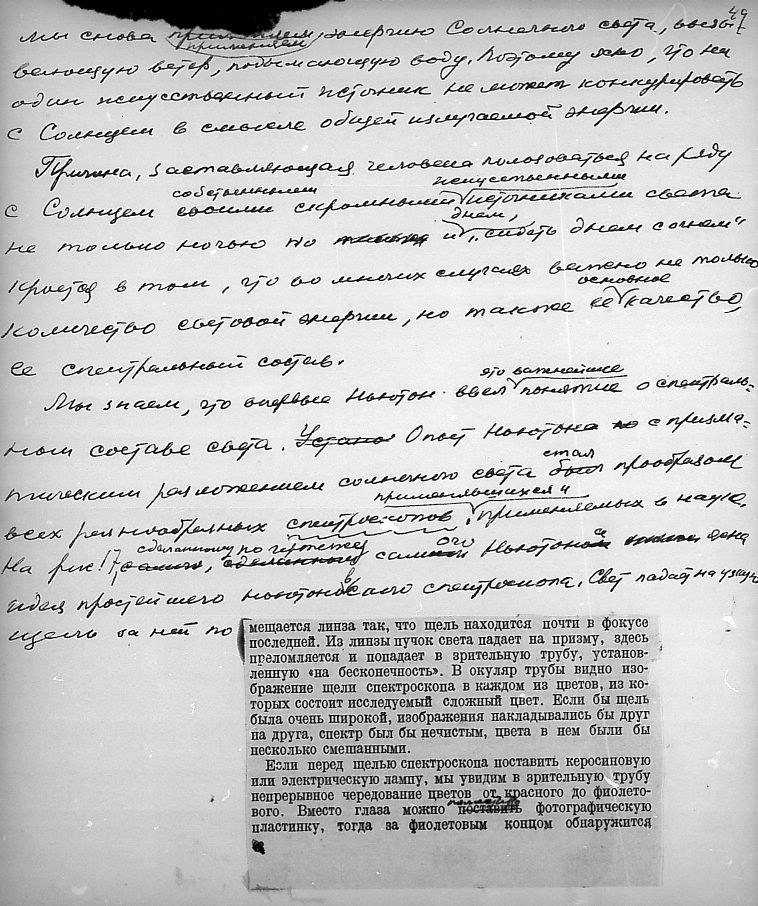 49
мы снова применяем энергию Солнечного света, вызы-
вающую ветер, подымающую воду. Поэтому ясно, что ни
один искусственный источник не может конкурировать
с Солнцем в смысле общей излучаемой энергии.
Причина, заставляющая человека пользоваться наряду
собственными искусственными
с Солнцем своими скромными источниками света
днем,
не только ночью но и „сидеть днем с огнем"
кроется в том, что во многих случаях важно не только
основное
количество световой энергии, но также ее качество,
ее спектральный состав.
это важнейшее
Мы знаем, что впервые Ньютон ввел понятие о спектраль-
ном составе света. Устано Опыт Ньютона по с призма-
стал
тическим разложением солнечного света был прообразом
применявшихся и
всех разнообразных спектроскопов, применяемых в науке.
сделанному по чертежу
На рис. 17, самого, сделанному самого Ньютона дана
идея простейшего ньютоновского спектроскопа. Свет падает на узкую
щель за ней по
мещается линза так, что щель находится почти в фокусе
последней. Из линзы пучок света падает на призму, здесь
преломляется и попадает в зрительную трубу, установ-
ленную «на бесконечность». В окуляр трубы видно изо-
бражение щели спектроскопа в каждом из цветов, из ко-
торых состоит исследуемый сложный цвет. Если бы щель
была очень широкой, изображения накладывались бы друг
на друга, спектр был бы нечистым, цвета в нем были бы
несколько смешанными.
Если перед щелью спектроскопа поставить керосиновую
или электрическую лампу, мы увидим в зрительную трубу
непрерывное чередование цветов от красного до фиолето-
вого. Вместо глаза можно поставить фотографическую
пластинку, тогда за фиолетовым концом обнаружится